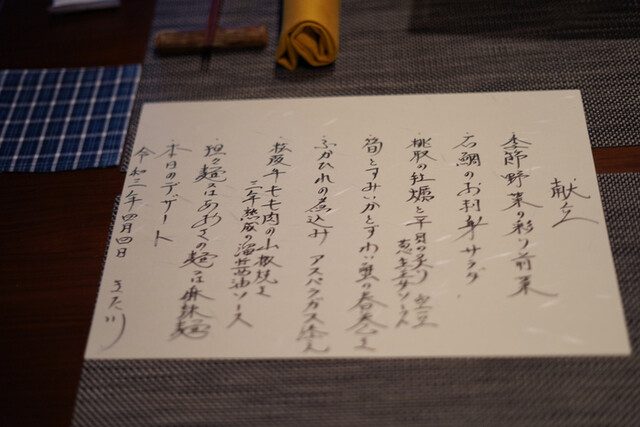 献立
季節野菜の彩り前菜
石鯛のお刺身サラダ
桃取の牡蠣と平目の炙り 空豆
葱生姜ソース
筍とすみいかとずわい蟹の春巻き
ふかひれの煮込み アスパラガス添え
松阪牛もも肉の山椒焼き
二年熟成の溜醤油ソース
担々麺又はあおさの麺又は麻辣麺
本日のデザート
令和三年 四月四日